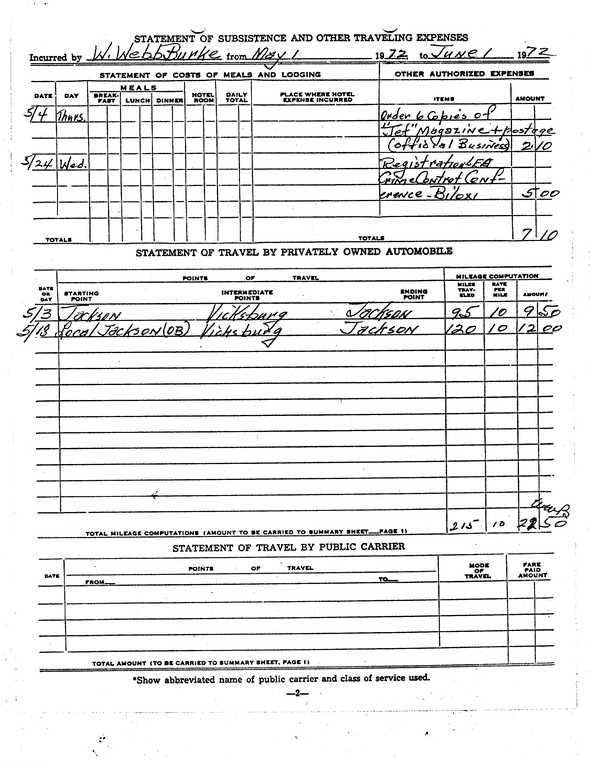 STATEMENT OF SUBSISTENCE AND OTHER TRAVELING EXPENSES
Incurred by W. Webb Burke from May 1 1972 to June 1 1972
STATEMENT OF COSTS OF MEALS AND LODGING OTHER AUTHORIZED EXPENSES
DATE DAY MEALS BREAK-FAST LUNCH DINNER HOTEL ROOM DAILY TOTAL PLACE WHERE HOTEL EXPENSE INCURRED ITEMS AMOUNT
5/4 Thurs. Order 6 Copies of
"Jet" Magazine + postage
(official Business) 2 10
5/24 Wed. Registration LEA
Crime Control Conf-
erence - Biloxi 5 00
TOTALS TOTALS 7 10
STATEMENT OF TRAVEL BY PRIVATELY OWNED AUTOMOBILE
POINTS OF TRAVEL MILEAGE COMPUTATION
DATE OR DAY STARTING POINT INTERMEDIATE POINTS ENDING POINT MILES TRAV-ELED RATE PER MILE AMOUNT
5/3 Jackson Vicksburg Jackson 95 10 9 50
5/18 Local Jackson (OB) Vicksburg Jackson 120 10 12 00
TOTAL MILEAGE COMPUTATIONS (AMOUNT TO BE CARRIED TO SUMMARY SHEET—PAGE 1) 215 10 50
STATEMENT OF TRAVEL BY PUBLIC CARRIER
DATE POINTS OF TRAVEL MODE OF TRAVEL FARE PAID AMOUNT
FROM— TO—
TOTAL AMOUNT (TO BE CARRIED TO SUMMARY SHEET, PAGE 1)
*Show abbreviated name of public carrier and class of service used.
—2—